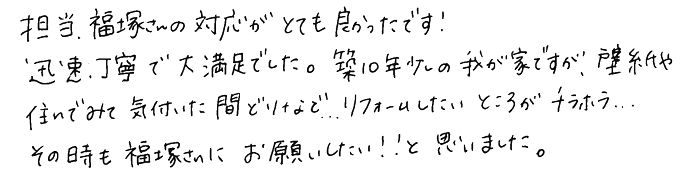 担当、福塚さんの対応がとても良かったです!
迅速、丁寧で大満足でした。築10年少しの我が家ですが、壁紙や
住んでみて気付いた間どりなど…リフォームしたいところがチラホラ…
その時も福塚さんにお願いしたい!!と思いました。